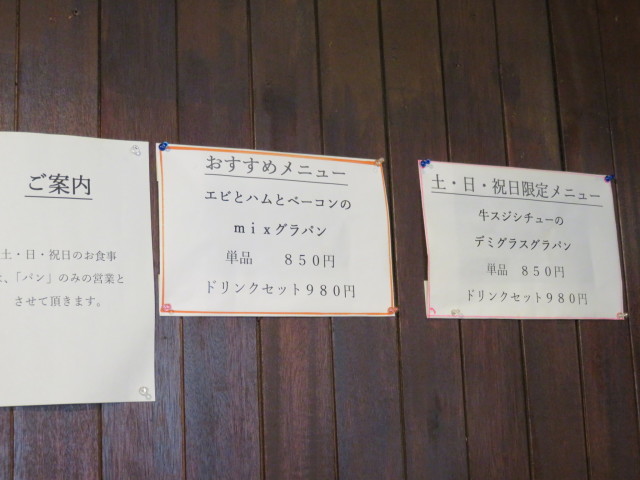 ご案内
土・日・祝日のお食事
は、「パン」のみの営業と
させて頂きます。
おすすめメニュー
エビとハムとベーコンの
mixグラパン
単品 850円
ドリンクセット980円
土・日・祝日限定メニュー
牛スジシチューの
デミグラスグラパン
単品 850円
ドリンクセット980円